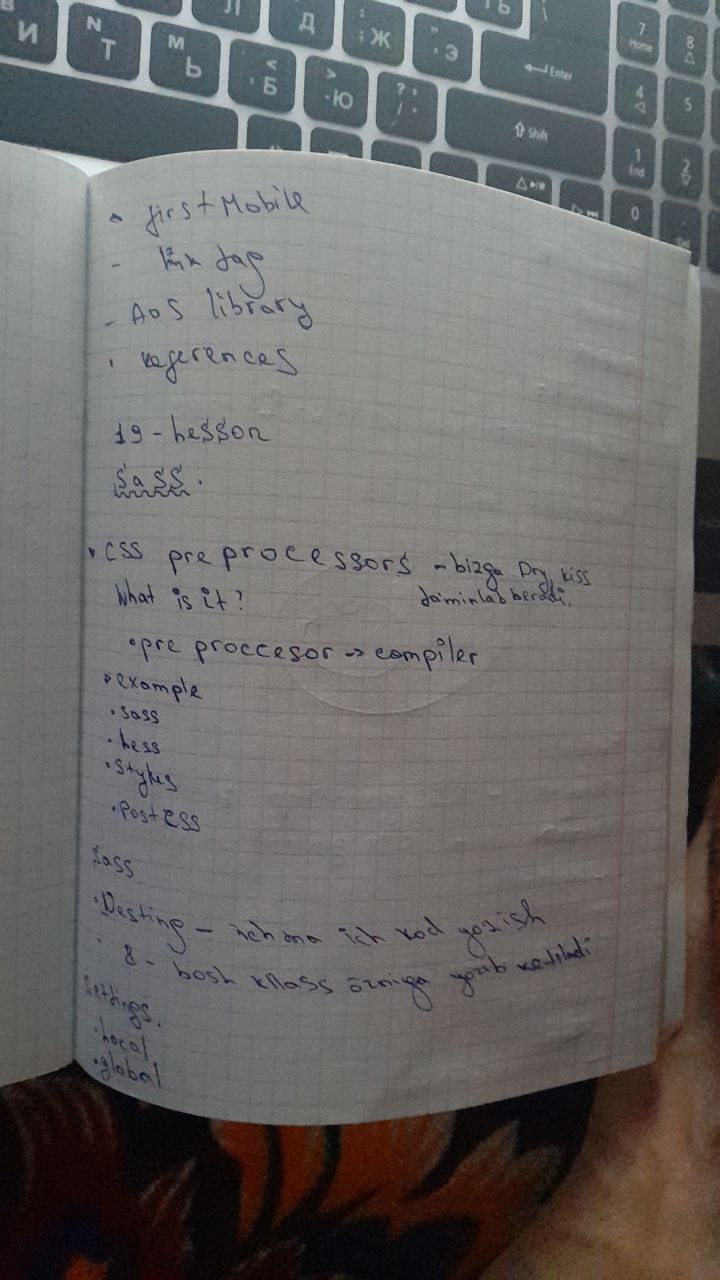 И
N T
М Ь
Л
Д
: ; Ж
" ' Э
< , Б
> . Ю
? , / .
Enter
Shift
7 Home
8
4
5
1 End
2
0
first Mobile
- link tag
- AOS library
references
19 - Lesson
Sass.
• CSS preprocessors - bizga Dry, kiss
What is it? taminlab beradi.
• pre proccesor -> compiler
• example
• sass
• Less
• Stylus
• Post CSS
Sass
• Nesting - ichma ich kod yozish
& - bosh klass o'rniga yozib ketiladi
Settings.
• Local
• global